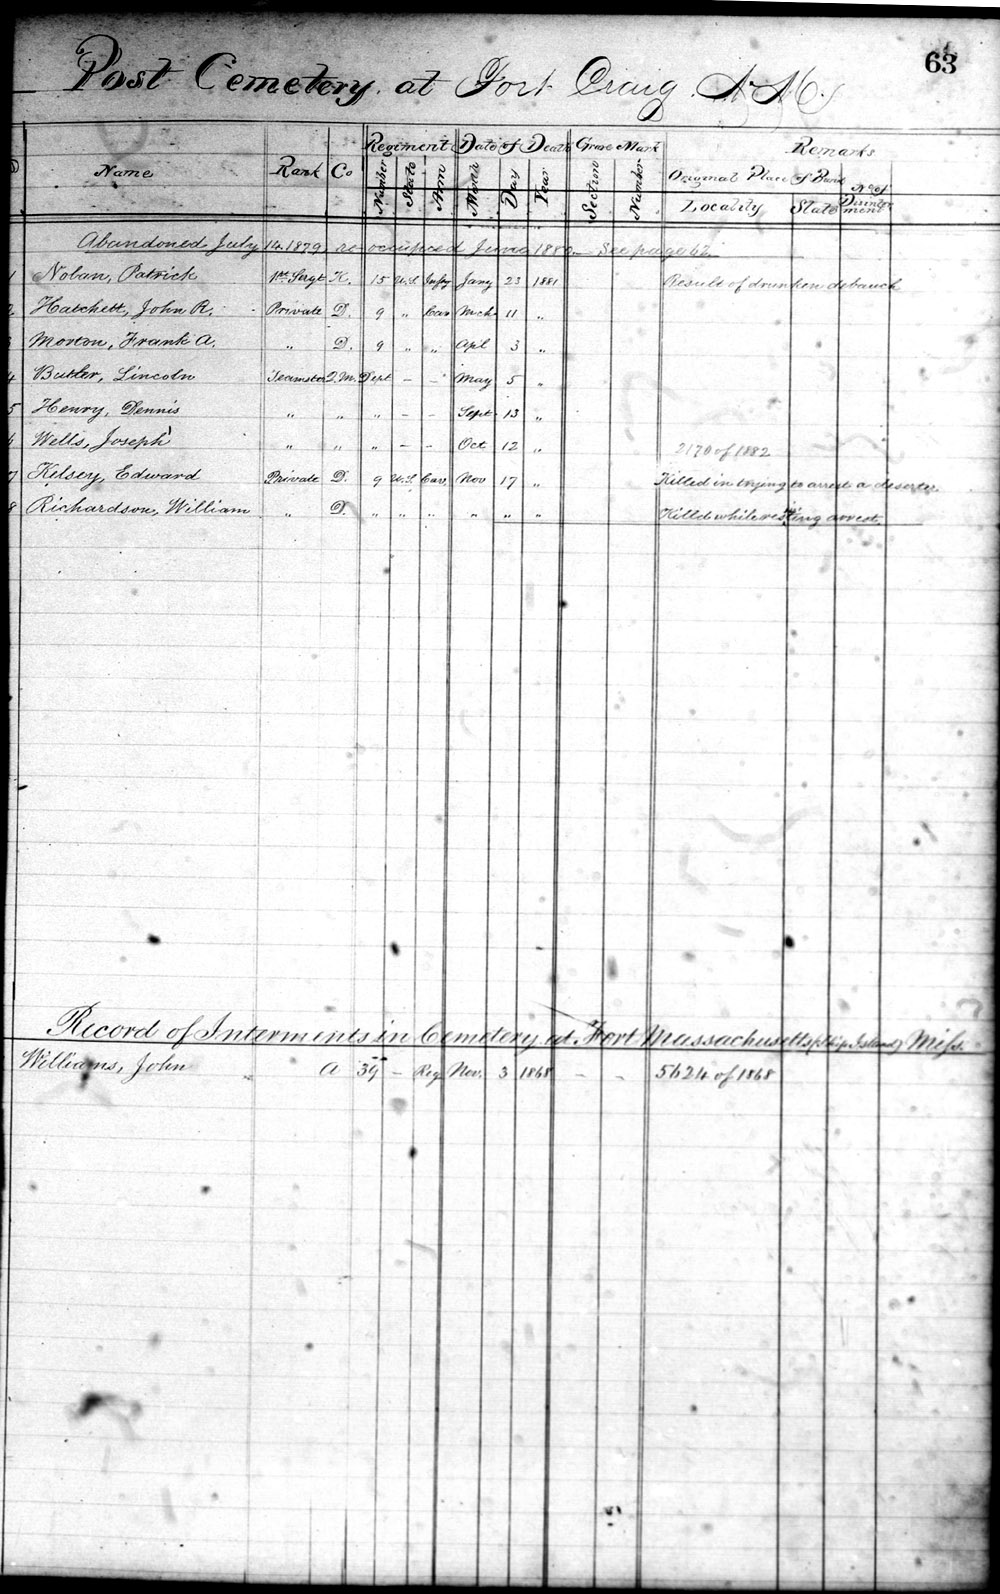 63
Post Cemetery at Fort Craig N.M.
Regiment Date of Death Grave Mark Remarks
Name Rank Co Number State Arm Month Day Year Section Number Original Place of Burial No of
Locality State Disinterment
Abandoned July 14. 1879, re-occupied June 1880 — See page 62
1 Nolan, Patrick 1st Sergt K. 15 U.S. Infy Jany 23 1881 Result of drunken debauch
2 Hatchett, John R. Private D. 9 " Cav Mch 11 "
3 Morton, Frank A. " D. 9 " " Apl 3 "
4 Butler, Lincoln Teamster Q.M. Dept – – May 5 "
5 Henry, Dennis " " " – – Sept 13 "
6 Wells, Joseph " " " – – Oct 12 " 2170 of 1882
7 Kelsey, Edward Private D. 9 U.S. Cav. Nov 17 " Killed in trying to arrest a deserter.
8 Richardson, William " D. " " " " " " Killed while resisting arrest.
Record of Interments in Cemetery at Fort Massachusetts (Ship Island) Miss.
Williams, John " A 39 – Reg. Nov. 3 1868 – – 5624 of 1868